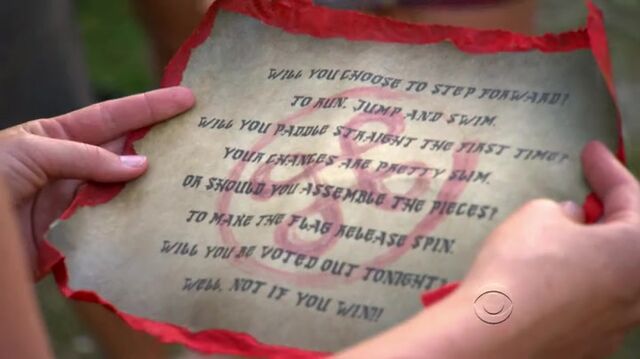 WILL YOU CHOOSE TO STEP FORWARD?
TO RUN, JUMP AND SWIM.
WILL YOU PADDLE STRAIGHT THE FIRST TIME?
YOUR CHANCES ARE PRETTY SLIM.
OR SHOULD YOU ASSEMBLE THE PIECES?
TO MAKE THE FLAG RELEASE SPIN.
WILL YOU BE VOTED OUT TONIGHT?
WELL, NOT IF YOU WIN!!